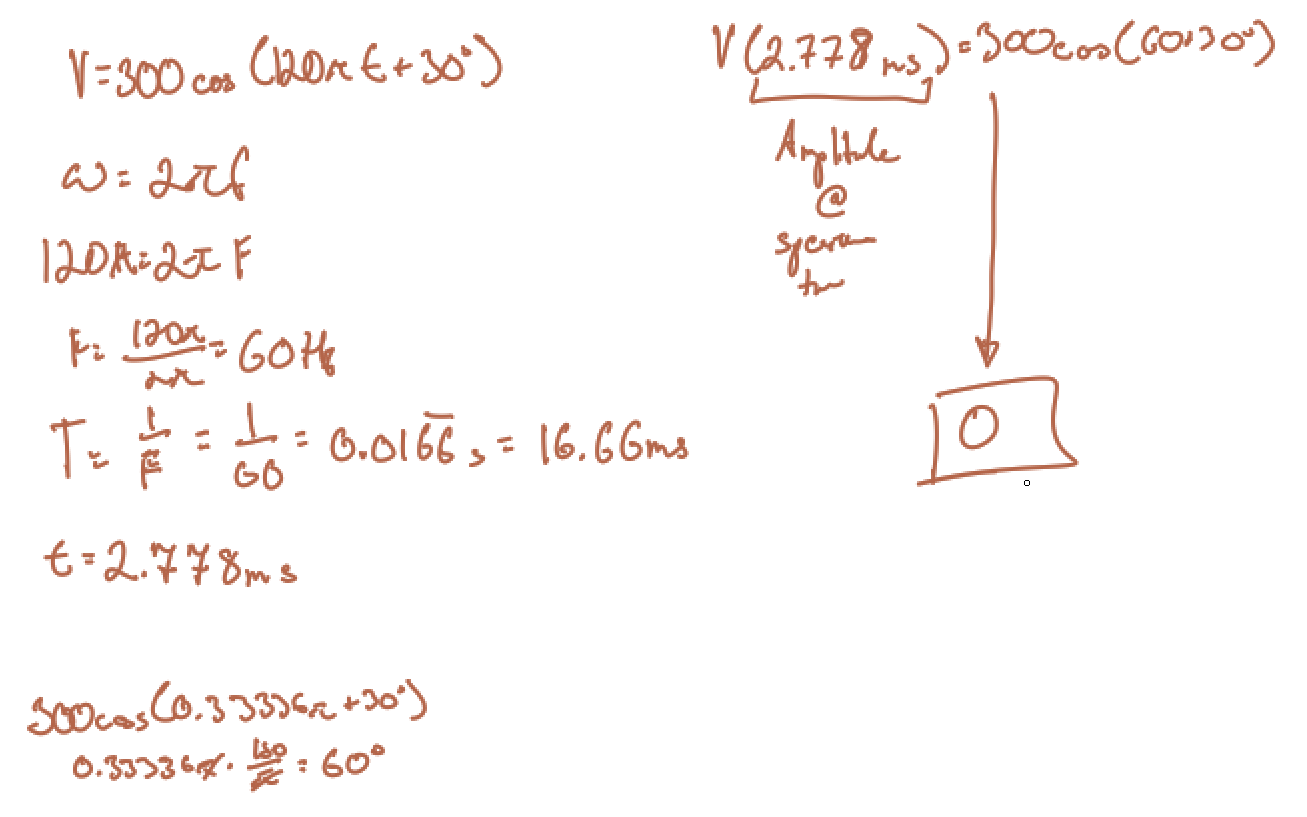 V=300cos(120πt+30°)
ω=2πf
120π=2πF
F=120π/2π=60Hz
T=1/F=1/60=0.0166s=16.66ms
t=2.778ms
300cos(0.33336π+30°)
0.33336π·180/π=60°
V(2.778ms)=300cos(60+30°)
Amplitude
@
0